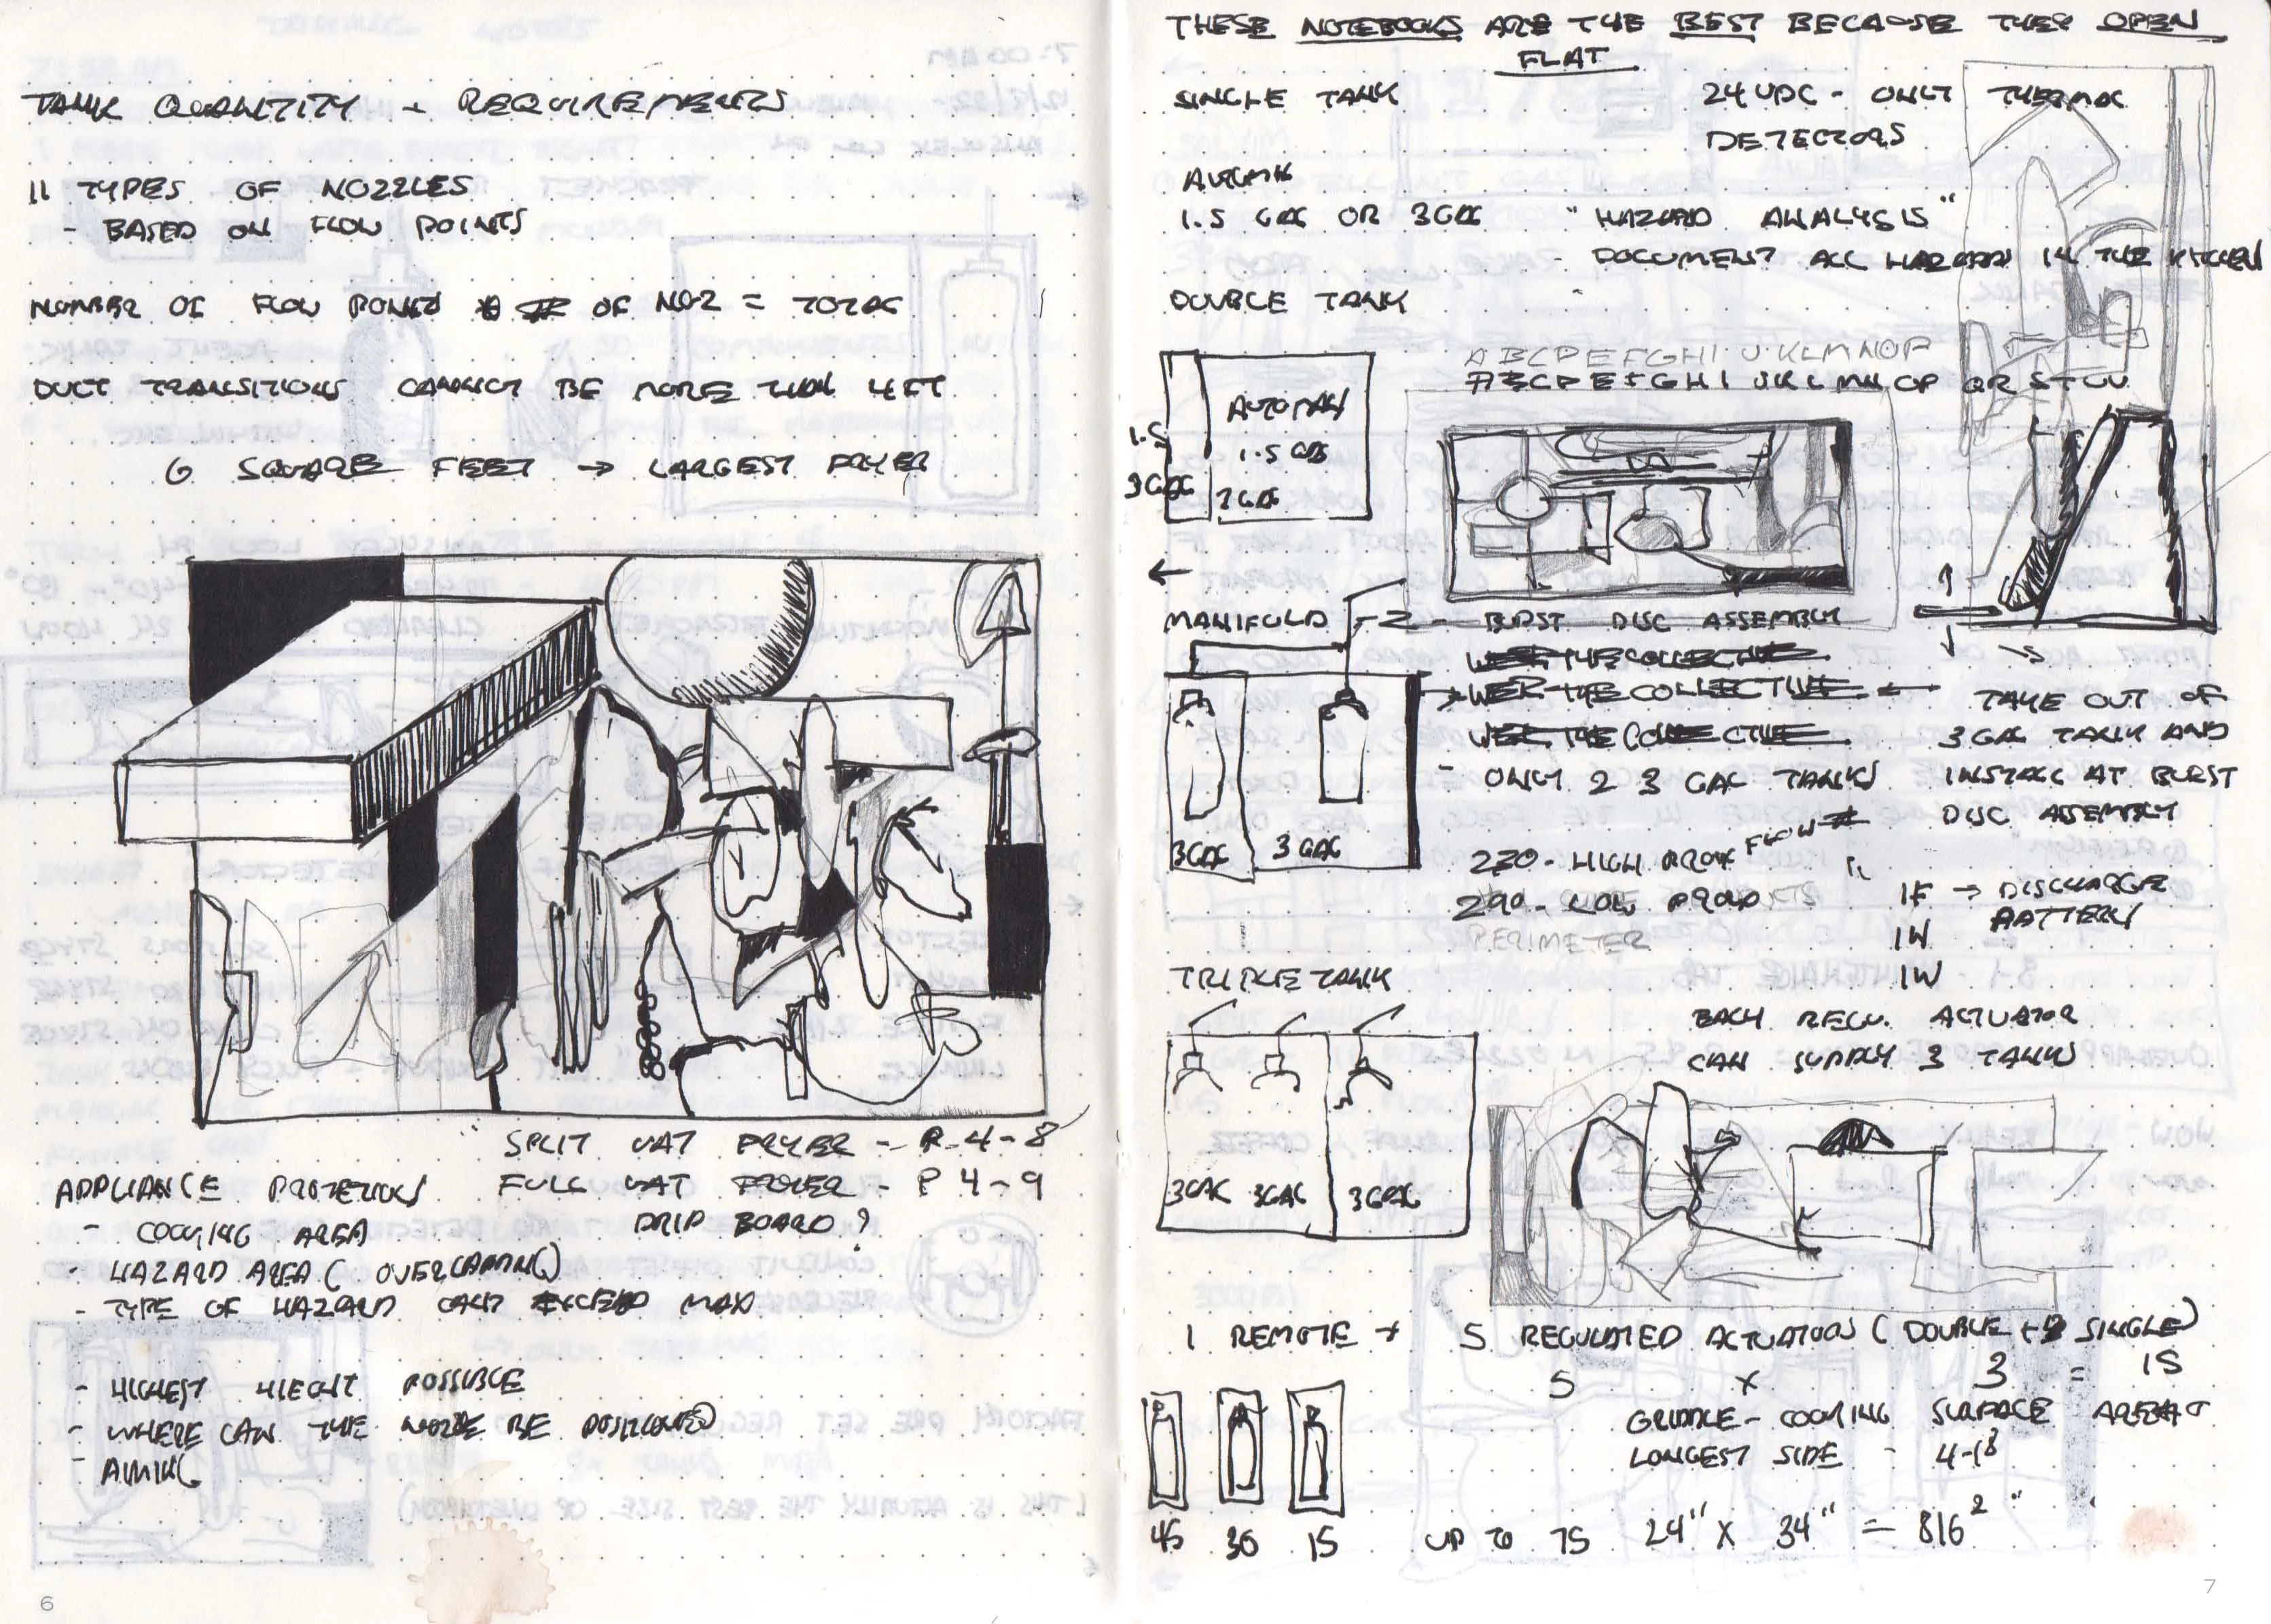 TANK QUANTITY - REQUIREMENTS
11 TYPES OF NOZZLES
- BASED ON FLOW POINTS
NUMBER OF FLOW POINTS OF NOZ = TOTAL
DUCT TRANSITIONS CANNOT BE MORE THAN 4FT
6 SQUARE FEET → LARGEST FRYER
SPLIT VAT FRYER - P. 4-8
FULL VAT FRYER - P 4-9
DRIP BOARD?
APPLIANCE PROTECTION
- COOKING AREA
- HAZARD AREA (OVERLAPPING)
- TYPE OF HAZARD CAN'T EXCEED MAX
- HIGHEST HIEGHT POSSIBLE
- WHERE CAN THE NOZZLE BE POSITIONED
- AIMING
6
THESE NOTEBOOKS ARE THE BEST BECAUSE THEY OPEN
FLAT
SINGLE TANK
24 VDC - ONLY THERMAL
DETECTORS
AUTOMAN
1.5 GAL OR 3GAL
"HAZARD ANALYSIS"
- DOCUMENT ALL HAZARDS IN THE KITCHEN
DOUBLE TANK
ABCDEFGHIJKLMNOP
ABCDEFGHIJKLMNOPQRSTUV
AUTOMAN
1.5
1.5 GAL
3GAL
3GAL
MANIFOLD - 2 - BURST DISC ASSEMBLY
WE'RE THE COLLECTIVE
WE'RE THE COLLECTIVE
WE'RE THE COLLECTIVE
← TAKE OUT OF
3 GAL TANK AND
INSTALL AT BURST
DISC ASSEMBLY
- ONLY 2 3 GAL TANKS
3GAL 3GAL
FLOW #
230 - HIGH PROX
290 - LOW PROX
PERIMETER
1F → DISCHARGE
BATTERY
1W
1W
TRIPLE TANK
EACH REGU. ACTUATOR
CAN SUPPLY 3 TANKS
3GAL 3GAL 3GAL
1 REMOTE + 5 REGULATED ACTUATORS (DOUBLE + SINGLE)
5 x 3 = 15
R R R
45 30 15 UP TO 75
GRIDDLE - COOKING SURFACE AREA
LONGEST SIDE - 4-18
24" X 34" = 816²"
7